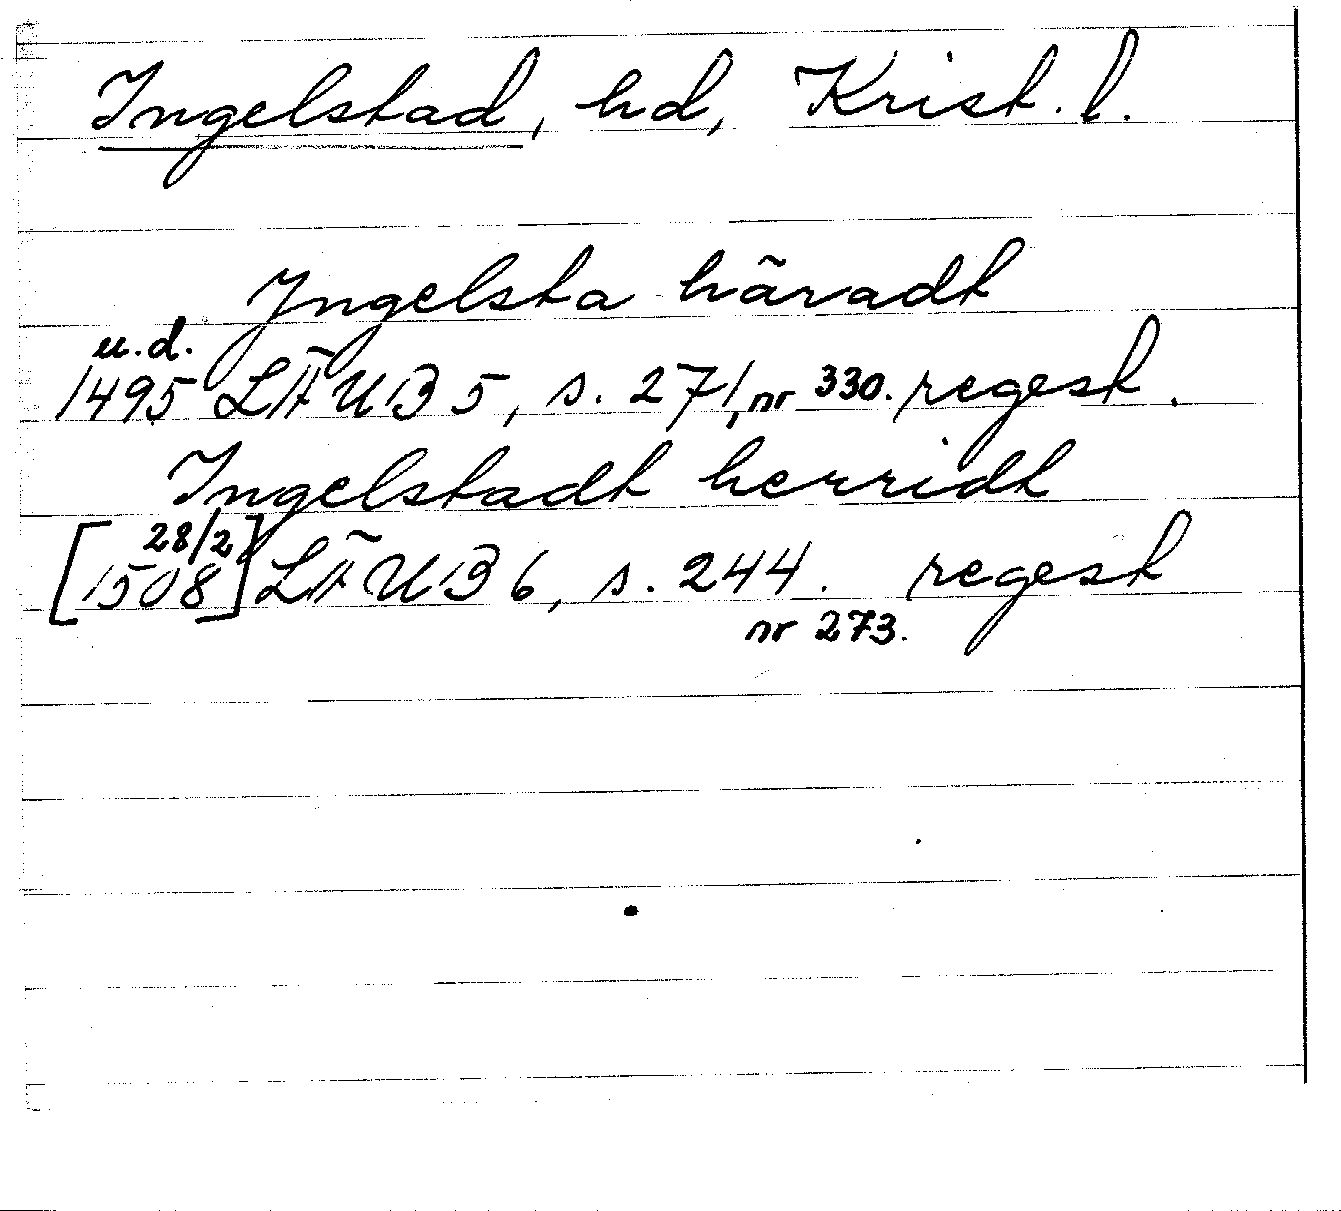 Ingelstad, hd, Krist. l.
Jngelsta häradt
u.d.
1495 LÄUB 5, s. 271, nr 330. regest.
Ingelstadt herridt
[28/2
1508] LÄUB 6, s. 244. regest
nr 273.